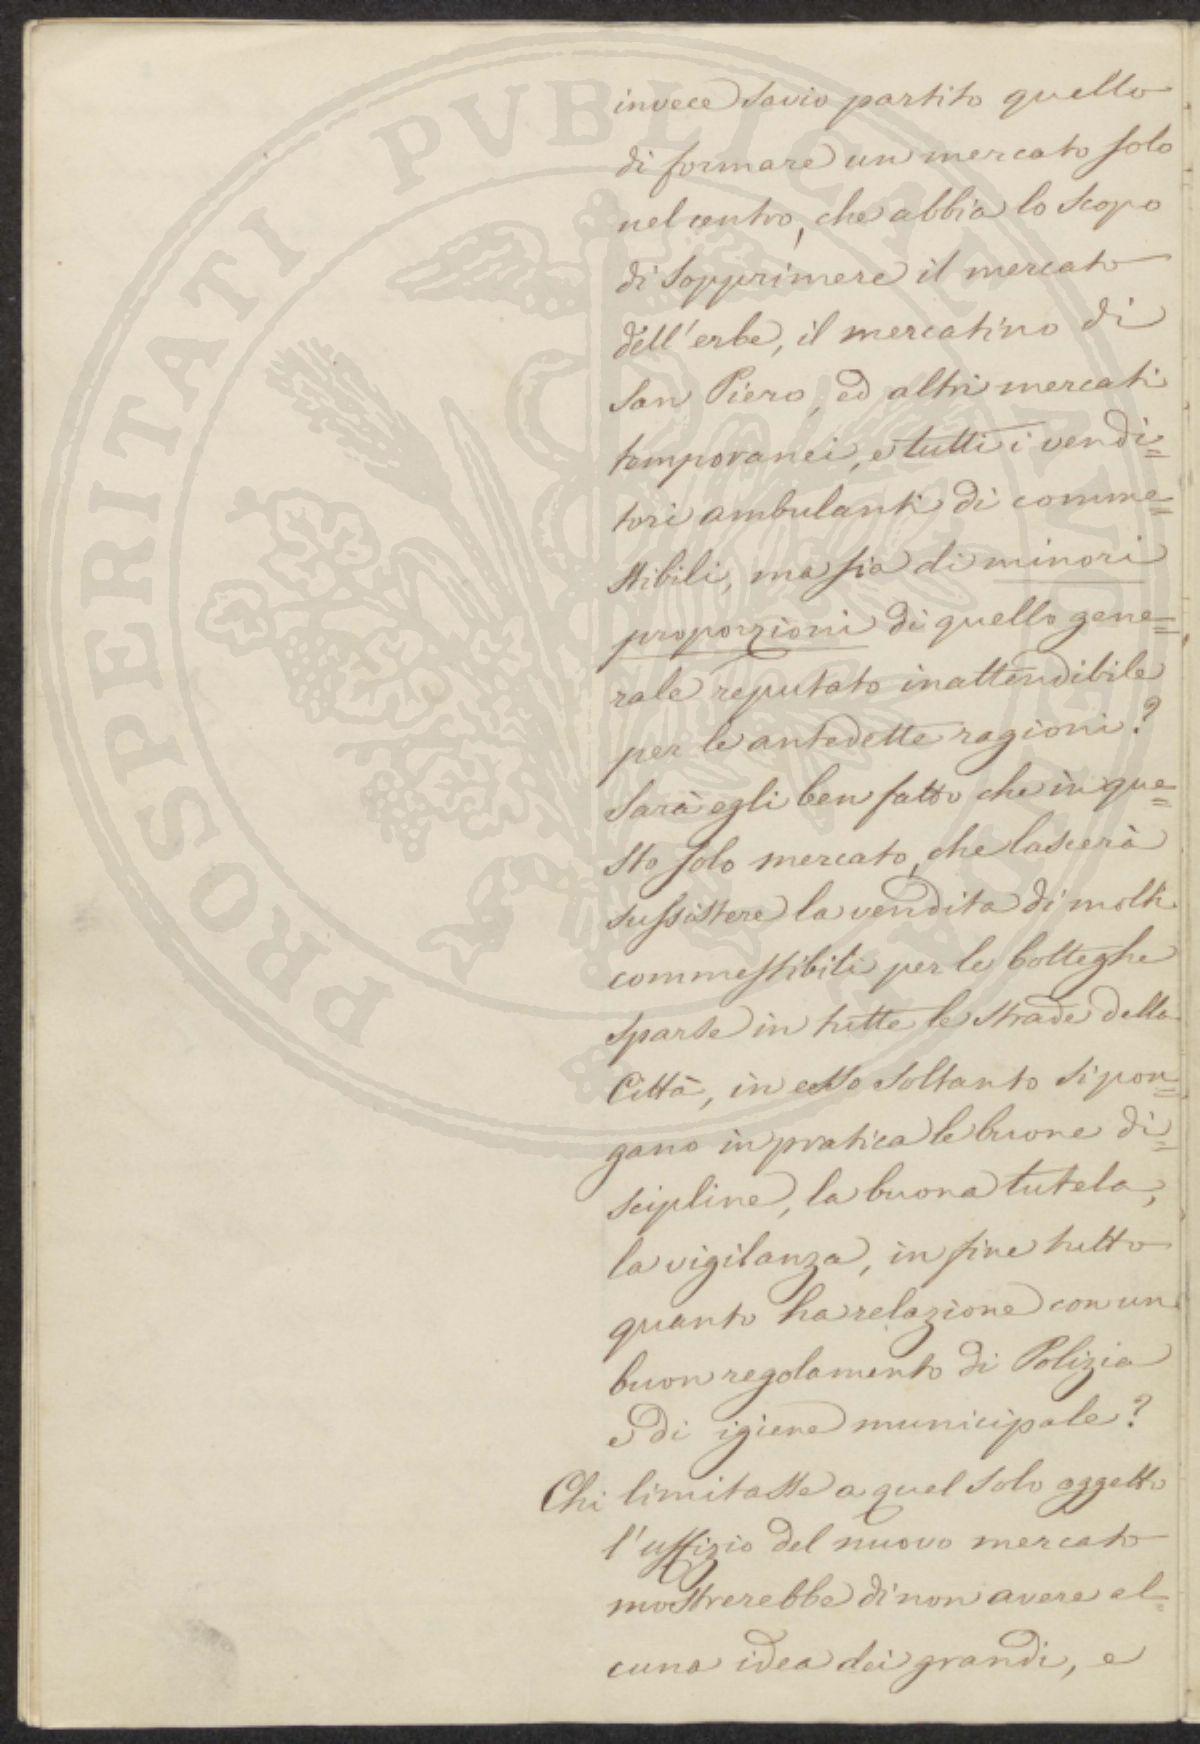 invece savio partito quello
di formare un mercato solo
nel centro, che abbia lo scopo
di sopprimere il mercato
dell'erbe, il mercatino di
San Piero, ed altri mercati
temporanei, e tutti i vendi=
tori ambulanti di comme=
stibili, ma sia di minori
proporzioni di quello gene=
rale reputato inattendibile
per le antedette ragioni?
Sarà egli ben fatto che in que=
sto solo mercato, che lascerà
sussistere la vendita di molti
commestibili per le botteghe
sparse in tutte le strade della
Città, in esso soltanto si pon=
gano in pratica le buone di=
scipline, la buona tutela,
la vigilanza, in fine tutto
quanto ha relazione con un
buon regolamento di Polizia
e di igiene municipale?
Chi limitasse a quel solo oggetto
l'uffizio del nuovo mercato
mostrerebbe di non avere al=
cuna idea dei grandi, e
PROSPERITATI PVBLICAE AVGENDAE